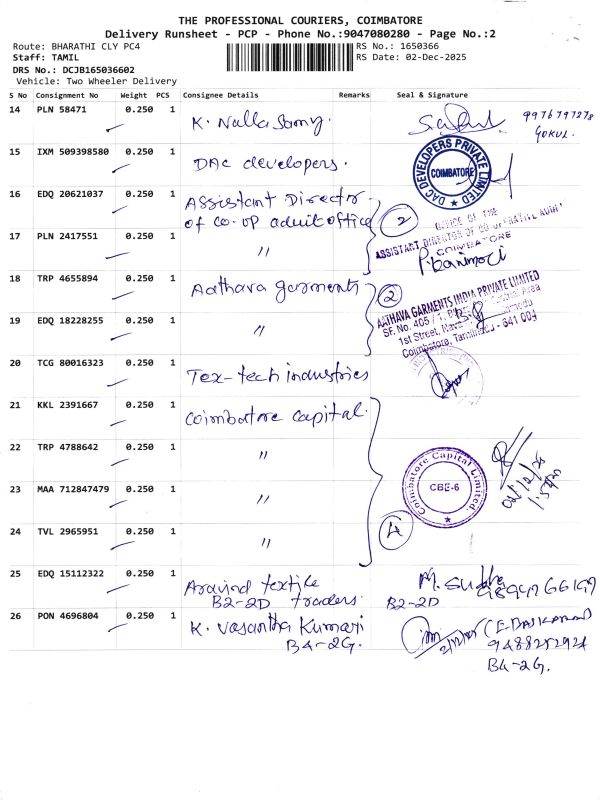 THE PROFESSIONAL COURIERS, COIMBATORE
Delivery Runsheet - PCP - Phone No.:9047080280 - Page No.:2
Route: BHARATHI CLY PC4 RS No.: 1650366
Staff: TAMIL RS Date: 02-Dec-2025
DRS No.: DCJB165036602
Vehicle: Two Wheeler Delivery
S No Consignment No Weight PCS Consignee Details Remarks Seal & Signature
14 PLN 58471 0.250 1 K. Nalla Samy. 9976797278
GOKUL.
15 IXM 509398580 0.250 1 DAC developers.
DAC DEVELOPERS PRIVATE LIMITED
COIMBATORE
16 EDQ 20621037 0.250 1 Assistant Director
of co-op aduit office 2
OFFICE OF THE
ASSISTANT DIRECTOR OF CO-OPERATIVE AUDIT
COIMBATORE
17 PLN 2417551 0.250 1 "
P. Kanimozi
18 TRP 4655894 0.250 1 Aathava garments 2
AATHAVA GARMENTS INDIA PRIVATE LIMITED
SF. No. 405 / 1,
1st Street,
Coimbatore, Tamilnadu - 641 004
19 EDQ 18228255 0.250 1 "
20 TCG 80016323 0.250 1 Tex-tech industries
21 KKL 2391667 0.250 1 Coimbatore capital.
22 TRP 4788642 0.250 1 "
Coimbatore Capital Limited.
CBE-6
02/12/25
23 MAA 712847479 0.250 1 "
24 TVL 2965951 0.250 1 " 4
25 EDQ 15112322 0.250 1 Aravind textile M. Sudha
B2-2D traders. B2-2D
26 PON 4696804 0.250 1 K. Vasantha Kumari
9488252924
B4-2G. B4-2G.